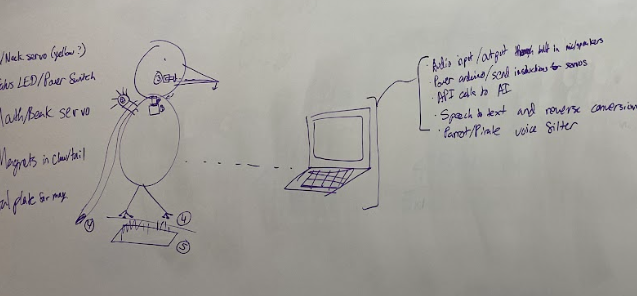 /Neck servo (yellow?)
LED/Power Switch
Mouth/Beak servo
Magnets in claw/tail
plate for mag
3
4
4
5
· Audio input/output through built in mic/speakers
· Power arduino/send instructions for servos
· API calls to AI
· Speech to text and reverse conversion
· Parrot/Pirate voice filter